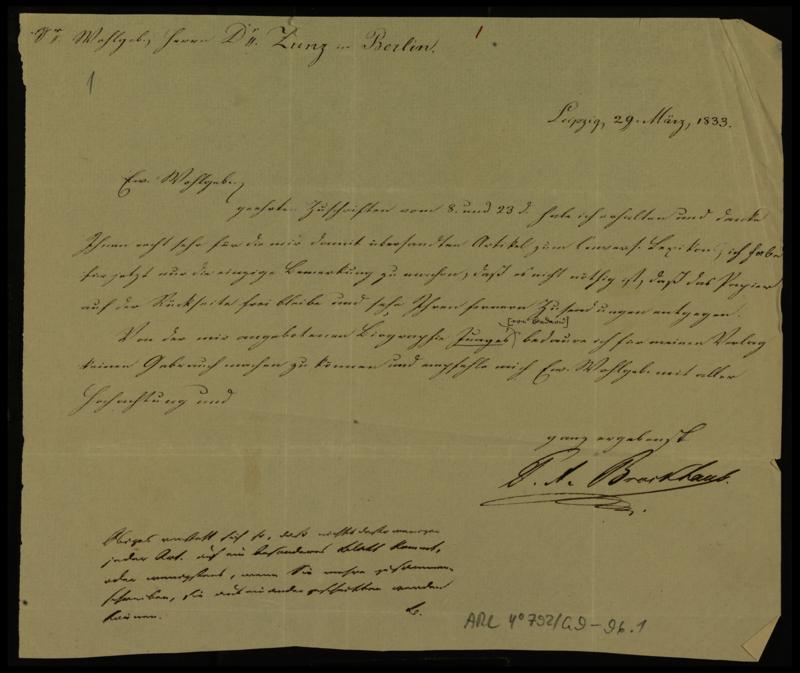 Sr. Wohlgeb. Herrn Dr. Zunz in Berlin.
1
Leipzig, 29. März, 1833.
Ew. Wohlgeb.
geehrten Zuschriften vom 8. und 23 d. habe ich erhalten und danke
Ihnen recht sehr für die mir damit übersandten Artikel zum Convers. Lexikon; ich habe
für jetzt nur die einzige Bemerkung zu machen, daß es nicht nöthig ist, daß das Papier
auf der Rückseite frei bleibe und sehe Ihren fernern Zusendungen entgegen.
Von der mir angebotenen Biographie bedaure ich für meinen Verlag
keinen Gebrauch machen zu können und empfehle mich Ew. Wohlgeb. mit aller
Hochachtung und
ganz ergebenst
F. A. Brockhaus.
Obiges versteht sich so, daß nichts desto weniger
jeder Art. auf ein besonderes Blatt kommt,
oder wenigstens, wenn Sie mehre zusammen
schreiben, sie auseinander geschnitten werden
können.
ARC 4° 792/G9-9b.1